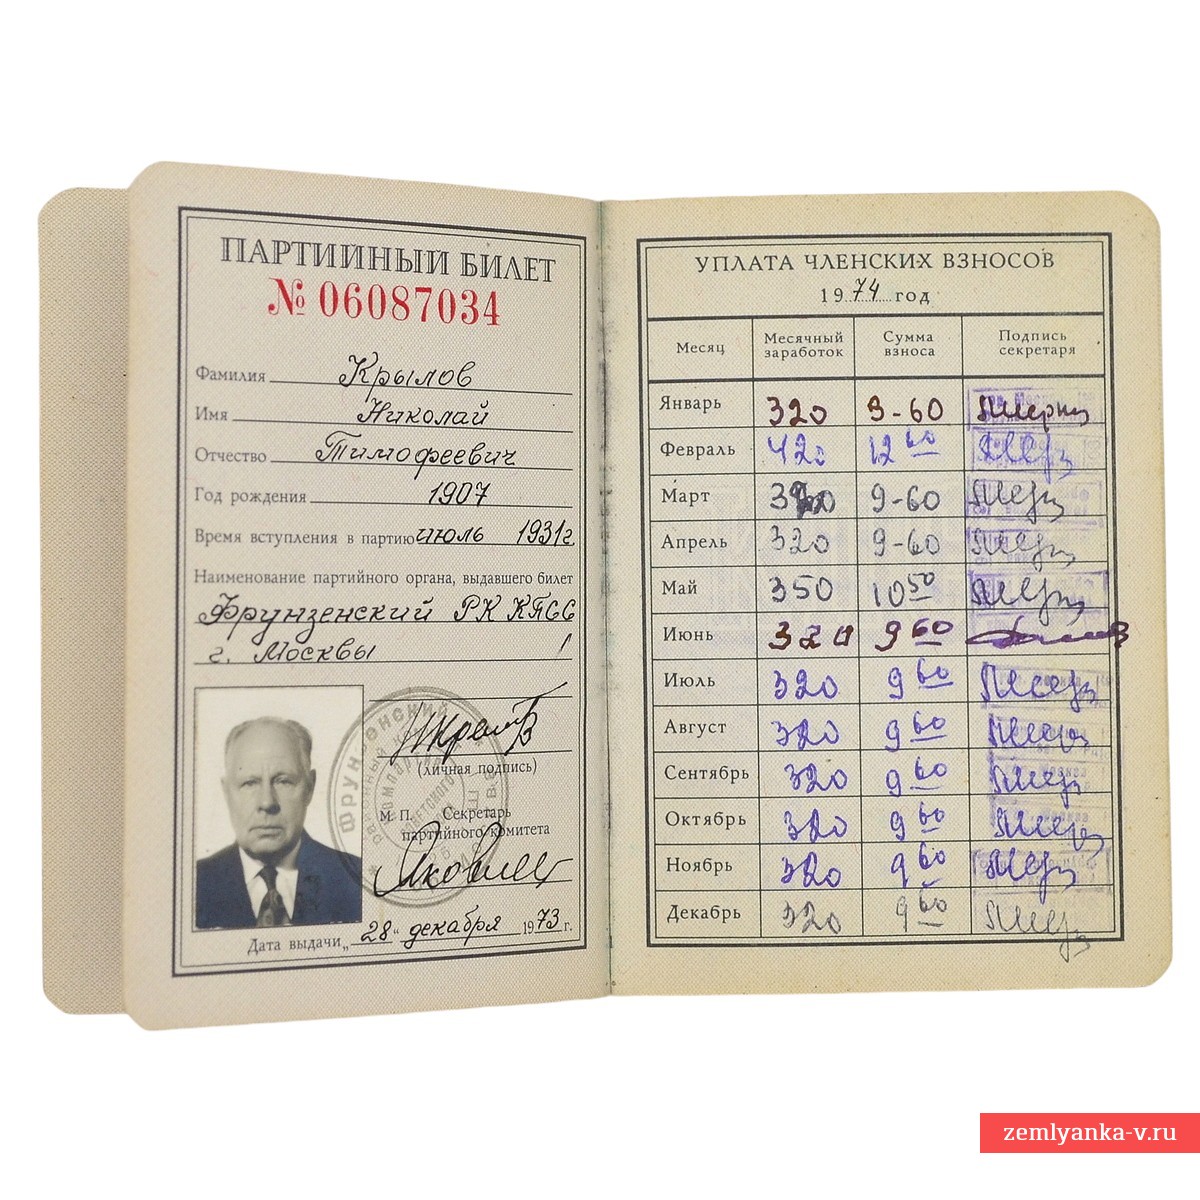 ПАРТИЙНЫЙ БИЛЕТ
№ 06087034
Фамилия Крылов
Имя Николай
Отчество Тимофеевич
Год рождения 1907
Время вступления в партию июль 1931г
Наименование партийного органа, выдавшего билет
Фрунзенский РК КПСС
г. Москвы
(личная подпись)
М. П. Секретарь
партийного комитета
Дата выдачи „28“ декабря 1973 г.
УПЛАТА ЧЛЕНСКИХ ВЗНОСОВ
1974 год
Месяц Месячный заработок Сумма взноса Подпись секретаря
Январь 320 9-60
Февраль 420 12 60
Март 9-60
Апрель 320 9-60
Май 350 10 50
Июнь 320 9 60
Июль 320 9 60
Август 320 9 60
Сентябрь 320 9 60
Октябрь 320 9 60
Ноябрь 320 9 60
Декабрь 320 9 60
zemlyanka-v.ru